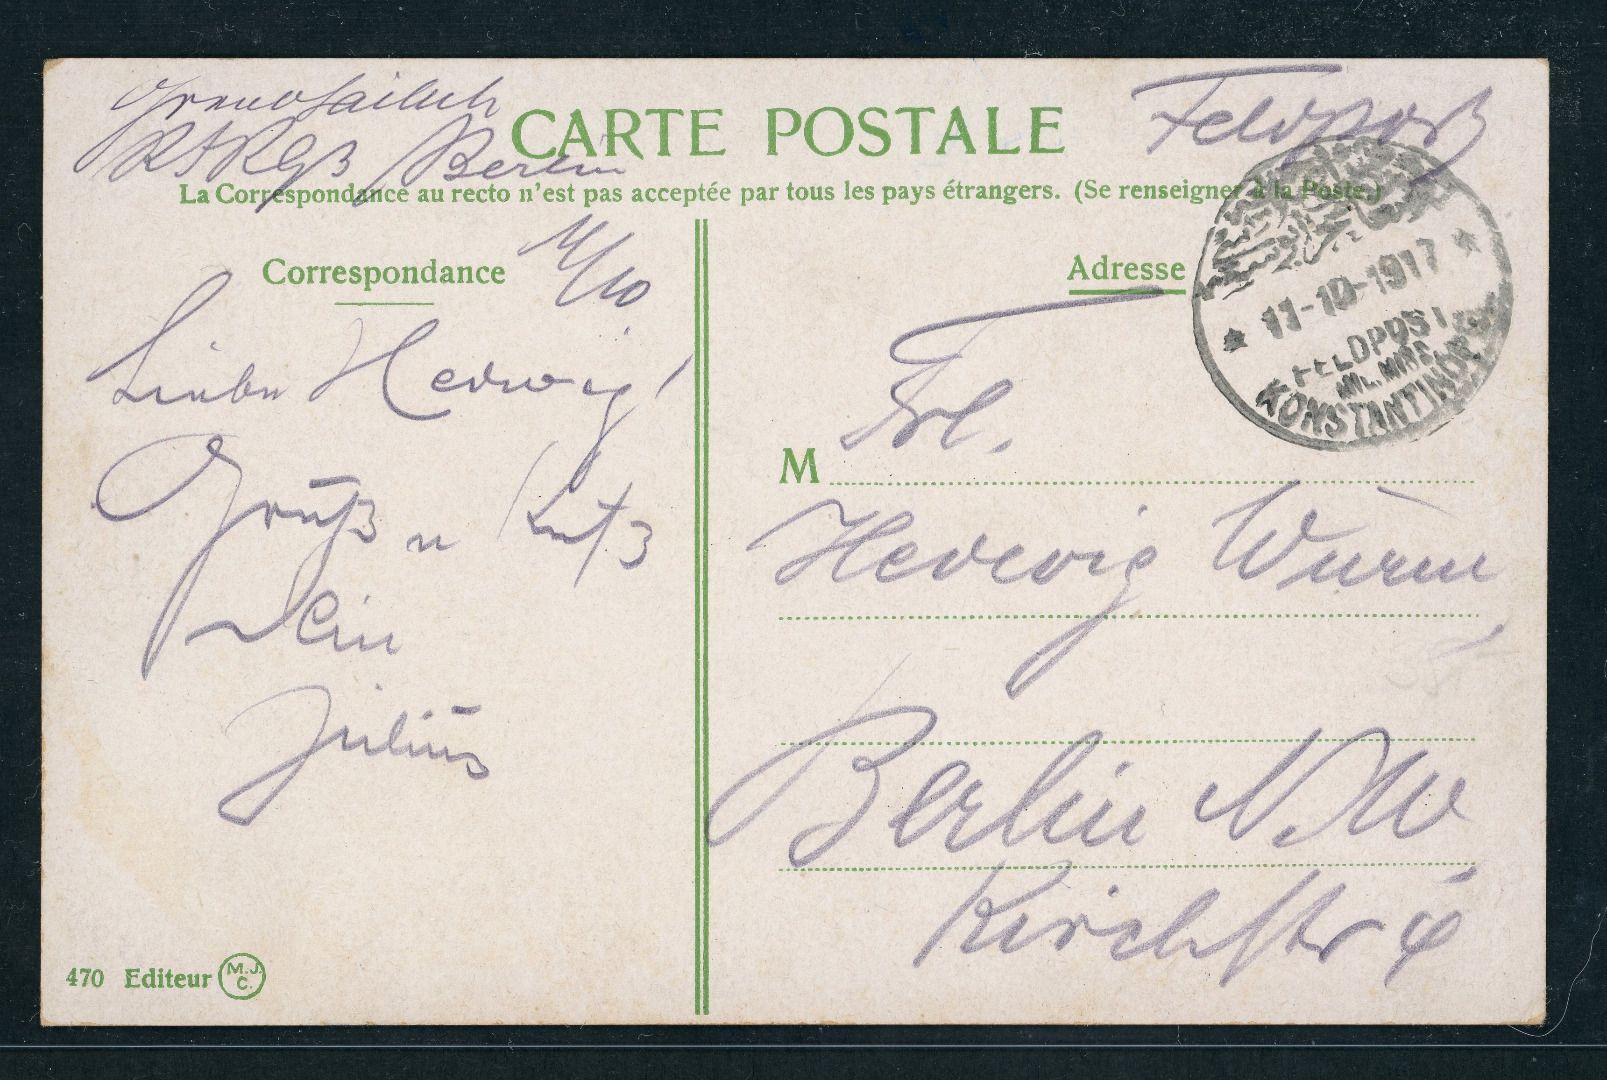 CARTE POSTALE
Feldpost
Berlin
La Correspondance au recto n'est pas acceptée par tous les pays étrangers. (Se renseigner à la Poste.)
Correspondance
11/10
Liebe Hedwig!
Gruß u Kuß
Dein
Julius
Adresse
* 11-10-1917 *
FELDPOST
MIL. MISS.
KONSTANTINOPEL
M
Frl.
Hedwig Wurm
Berlin N.W.
Kirchstr
470 Editeur M.J.C.